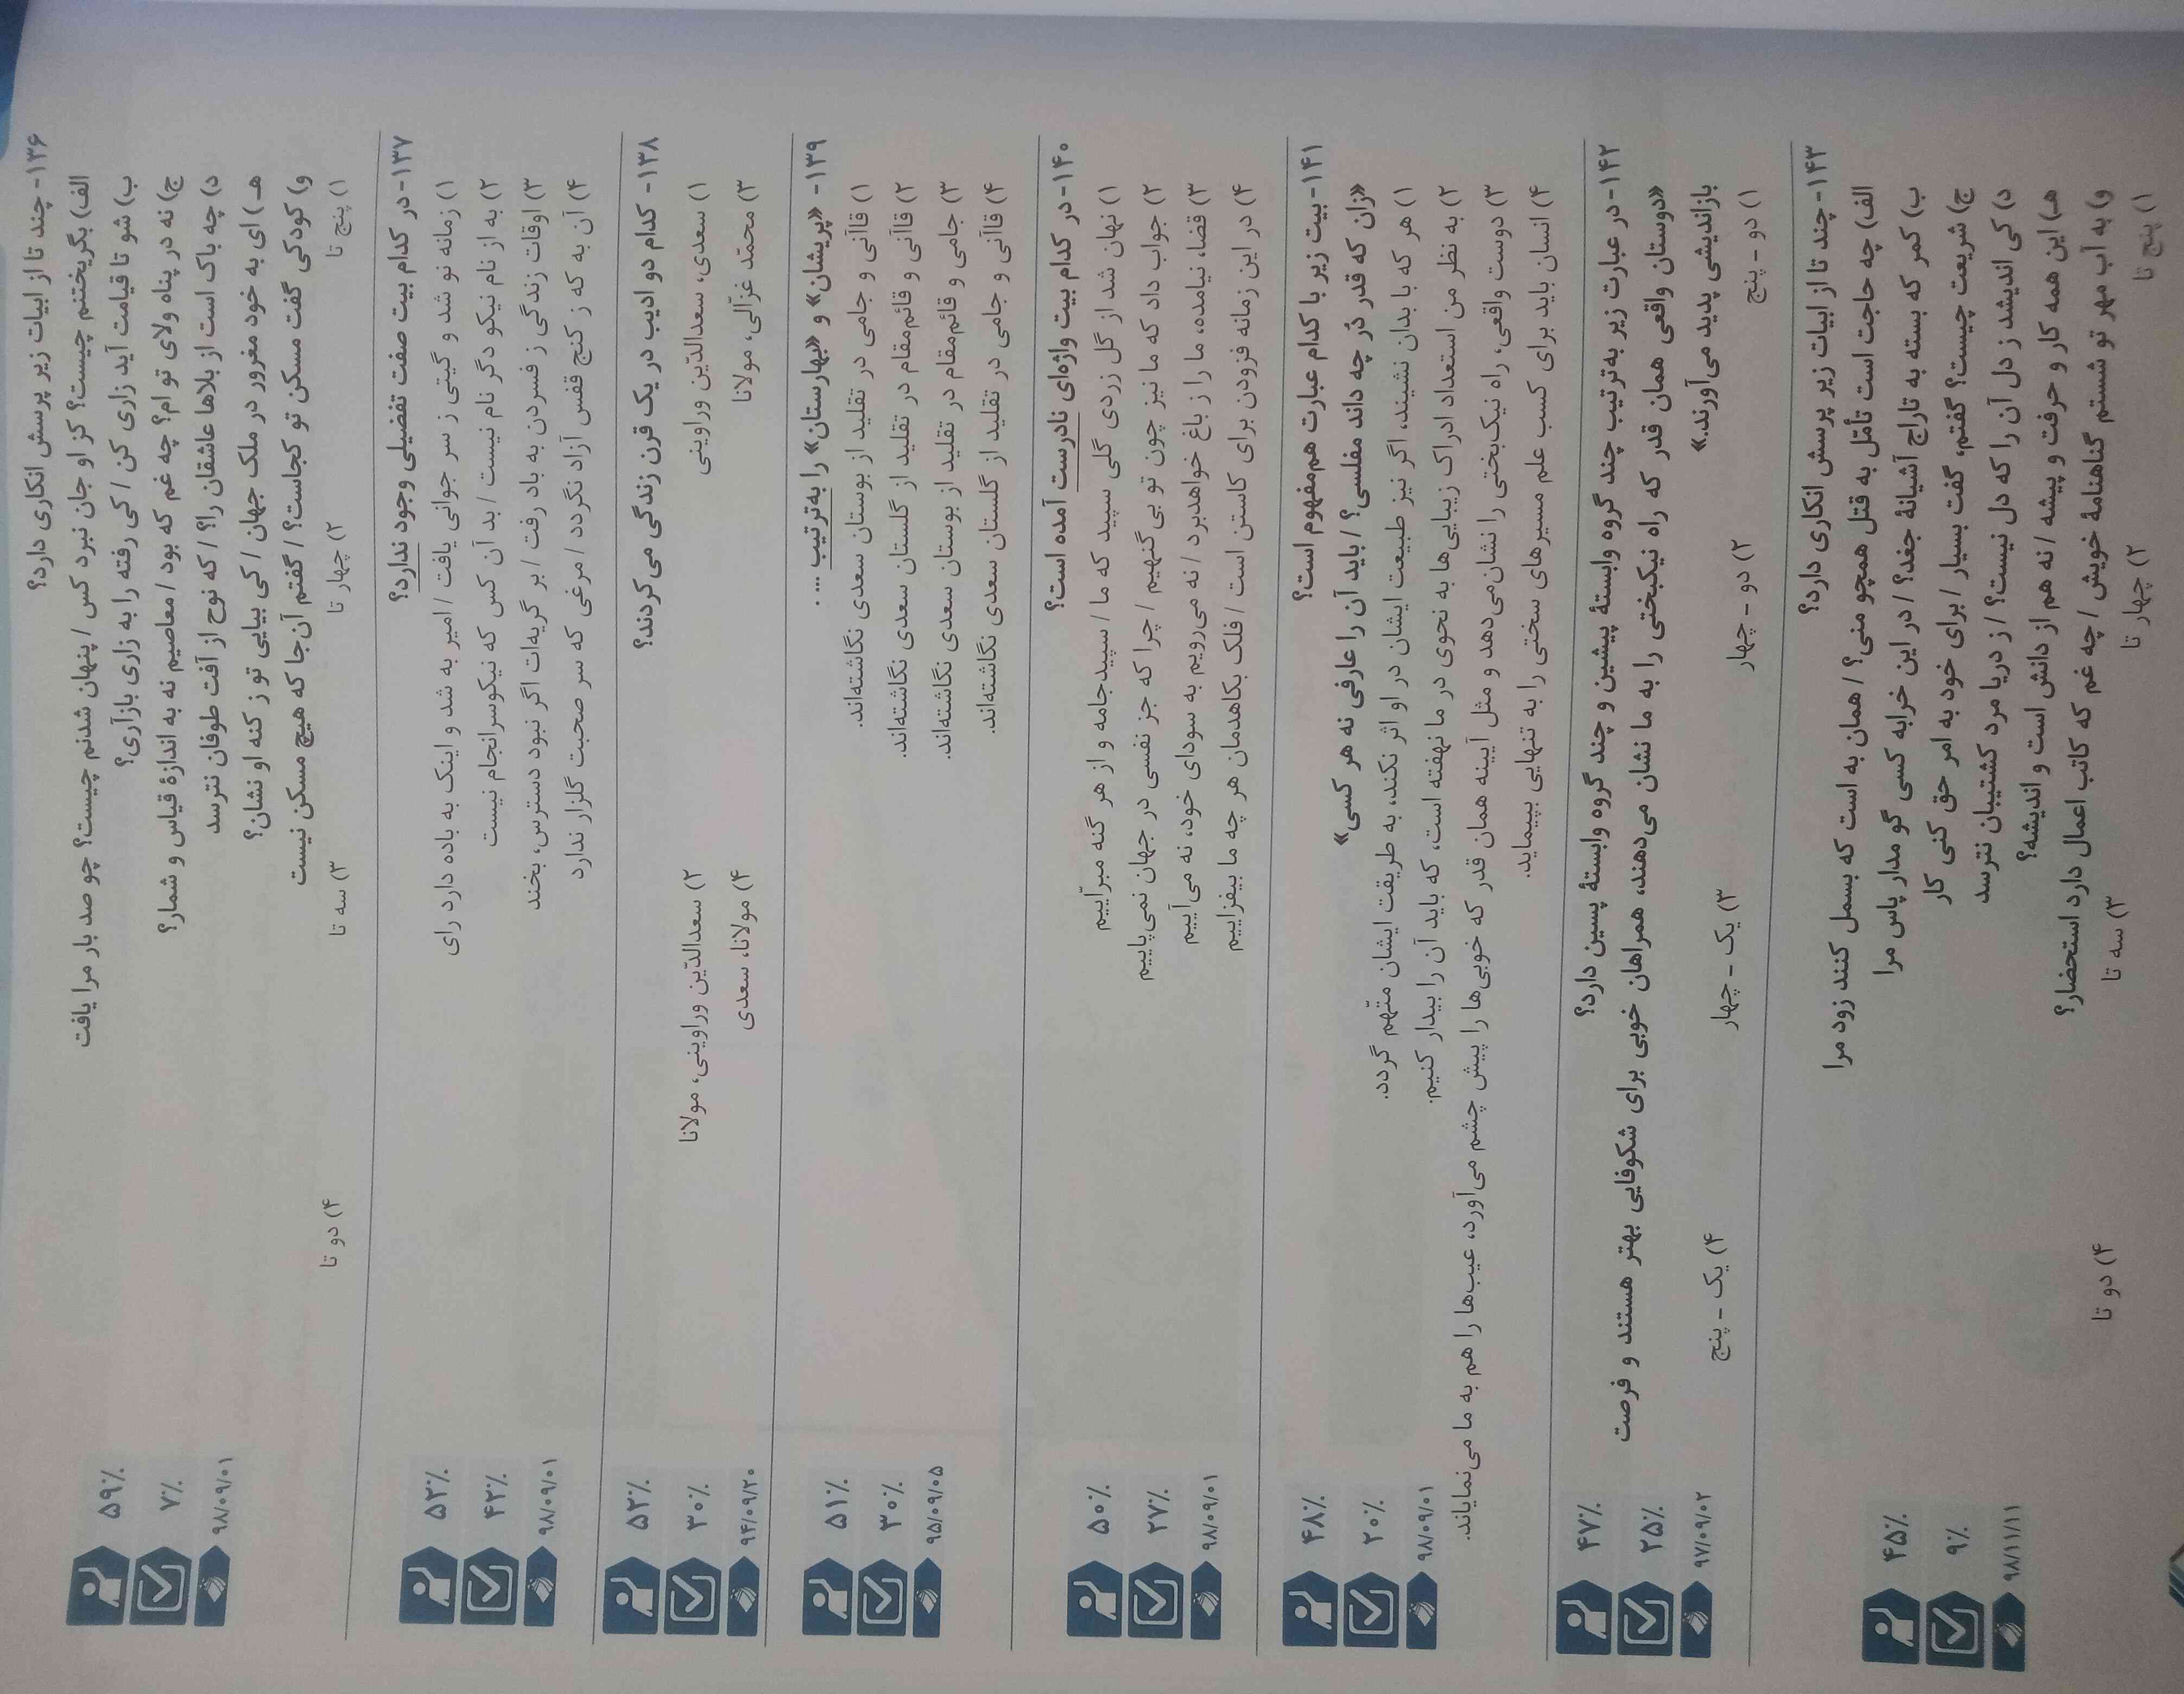 ۱۳۶- چند تا از ابیات زیر پرسش انکاری دارد؟
الف) بگریختنم چیست؟ کز او جان نبرد کس / پنهان شدنم چیست؟ چو صد بار مرا یافت
ب) شو تا قیامت آید زاری کن / کی رفته را به زاری بازآری؟
ج) نه در پناه ولای تو ام؟ چه غم که بود / معاصیم نه به اندازهٔ قیاس و شمار؟
د) چه باک است از بلاها عاشقان را؟ / که نوح از آفت طوفان نترسد
هـ) ای به خود مغرور در ملک جهان / کی بیایی تو ز کنه او نشان؟
و) کودکی گفت مسکن تو کجاست؟ / گفتم آن‌جا که هیچ مسکن نیست
۱) پنج تا ۲) چهار تا ۳) سه تا ۴) دو تا
۵۹٪
۷٪
۹۸/۰۹/۰۱
۱۳۷- در کدام بیت صفت تفضیلی وجود ندارد؟
۱) زمانه نو شد و گیتی ز سر جوانی یافت / امیر به شد و اینک به باده دارد رای
۲) به از نام نیکو دگر نام نیست / بد آن کس که نیکوسرانجام نیست
۳) اوقات زندگی ز فسردن به باد رفت / بر گریه‌ات اگر نبود دسترس، بخند
۴) آن به که ز کنج قفس آزاد نگردد / مرغی که سر صحبت گلزار ندارد
۵۲٪
۴۲٪
۹۸/۰۹/۰۱
۱۳۸- کدام دو ادیب در یک قرن زندگی می‌کردند؟
۱) سعدی، سعدالدّین وراوینی ۲) سعدالدّین وراوینی، مولانا
۳) محمّد غزّالی، مولانا ۴) مولانا، سعدی
۵۲٪
۳۰٪
۹۴/۰۹/۲۰
۱۳۹- «پریشان» و «بهارستان» را به‌ترتیب ... .
۱) قاآنی و جامی در تقلید از بوستان سعدی نگاشته‌اند.
۲) قاآنی و قائم‌مقام در تقلید از گلستان سعدی نگاشته‌اند.
۳) جامی و قائم‌مقام در تقلید از بوستان سعدی نگاشته‌اند.
۴) قاآنی و جامی در تقلید از گلستان سعدی نگاشته‌اند.
۵۱٪
۳۰٪
۹۵/۰۹/۰۵
۱۴۰- در کدام بیت واژه‌ای نادرست آمده است؟
۱) نهان شد از گل زردی گلی سپید که ما / سپیدجامه و از هر گنه مبرّاییم
۲) جواب داد که ما نیز چون تو بی گنهیم / چرا که جز نفسی در جهان نمی‌پاییم
۳) قضا، نیامده، ما را ز باغ خواهدبرد / نه می‌رویم به سودای خود، نه می‌آییم
۴) در این زمانه فزودن برای کاستن است / فلک بکاهدمان هر چه ما بیفزاییم
۵۰٪
۲۷٪
۹۸/۰۹/۰۱
۱۴۱- بیت زیر با کدام عبارت هم‌مفهوم است؟
«زان که قدر دُر چه داند مفلسی؟ / باید آن را عارفی نه هر کسی»
۱) هر که با بدان نشیند، اگر نیز طبیعت ایشان در او اثر نکند، به طریقت ایشان متّهم گردد.
۲) به نظر من استعداد ادراک زیبایی‌ها به نحوی در ما نهفته است، که باید آن را بیدار کنیم.
۳) دوست واقعی، راه نیک‌بختی را نشان‌می‌دهد و مثل آیینه همان قدر که خوبی‌ها را پیش چشم می‌آورد، عیب‌ها را هم به ما می‌نمایاند.
۴) انسان باید برای کسب علم مسیرهای سختی را به تنهایی بپیماید.
۴۸٪
۲۰٪
۹۸/۰۹/۰۱
۱۴۲- در عبارت زیر به‌ترتیب چند گروه وابستهٔ پیشین و چند گروه وابستهٔ پسین دارد؟
«دوستان واقعی همان قدر که راه نیکبختی را به ما نشان می‌دهند، همراهان خوبی برای شکوفایی بهتر هستند و فرصت
بازاندیشی پدید می‌آورند.»
۱) دو - پنج ۲) دو - چهار ۳) یک - چهار ۴) یک - پنج
۴۷٪
۲۵٪
۹۷/۰۹/۰۲
۱۴۳- چند تا از ابیات زیر پرسش انکاری دارد؟
الف) چه حاجت است تأمّل به قتل همچو منی؟ / همان به است که بسمل کنند زود مرا
ب) کمر که بسته به تاراج آشیانهٔ جغد؟ / در این خرابه کسی گو مدار پاس مرا
ج) شریعت چیست؟ گفتم، گفت بسیار / برای خود به امر حق کنی کار
د) کی اندیشد ز دل آن را که دل نیست؟ / ز دریا مرد کشتیبان نترسد
هـ) این همه کار و حرفت و پیشه / نه هم از دانش است و اندیشه؟
و) به آب مهر تو شستم گناهنامهٔ خویش / چه غم که کاتب اعمال دارد استحضار؟
۱) پنج تا ۲) چهار تا ۳) سه تا ۴) دو تا
۴۵٪
۹٪
۹۸/۱۱/۱۱